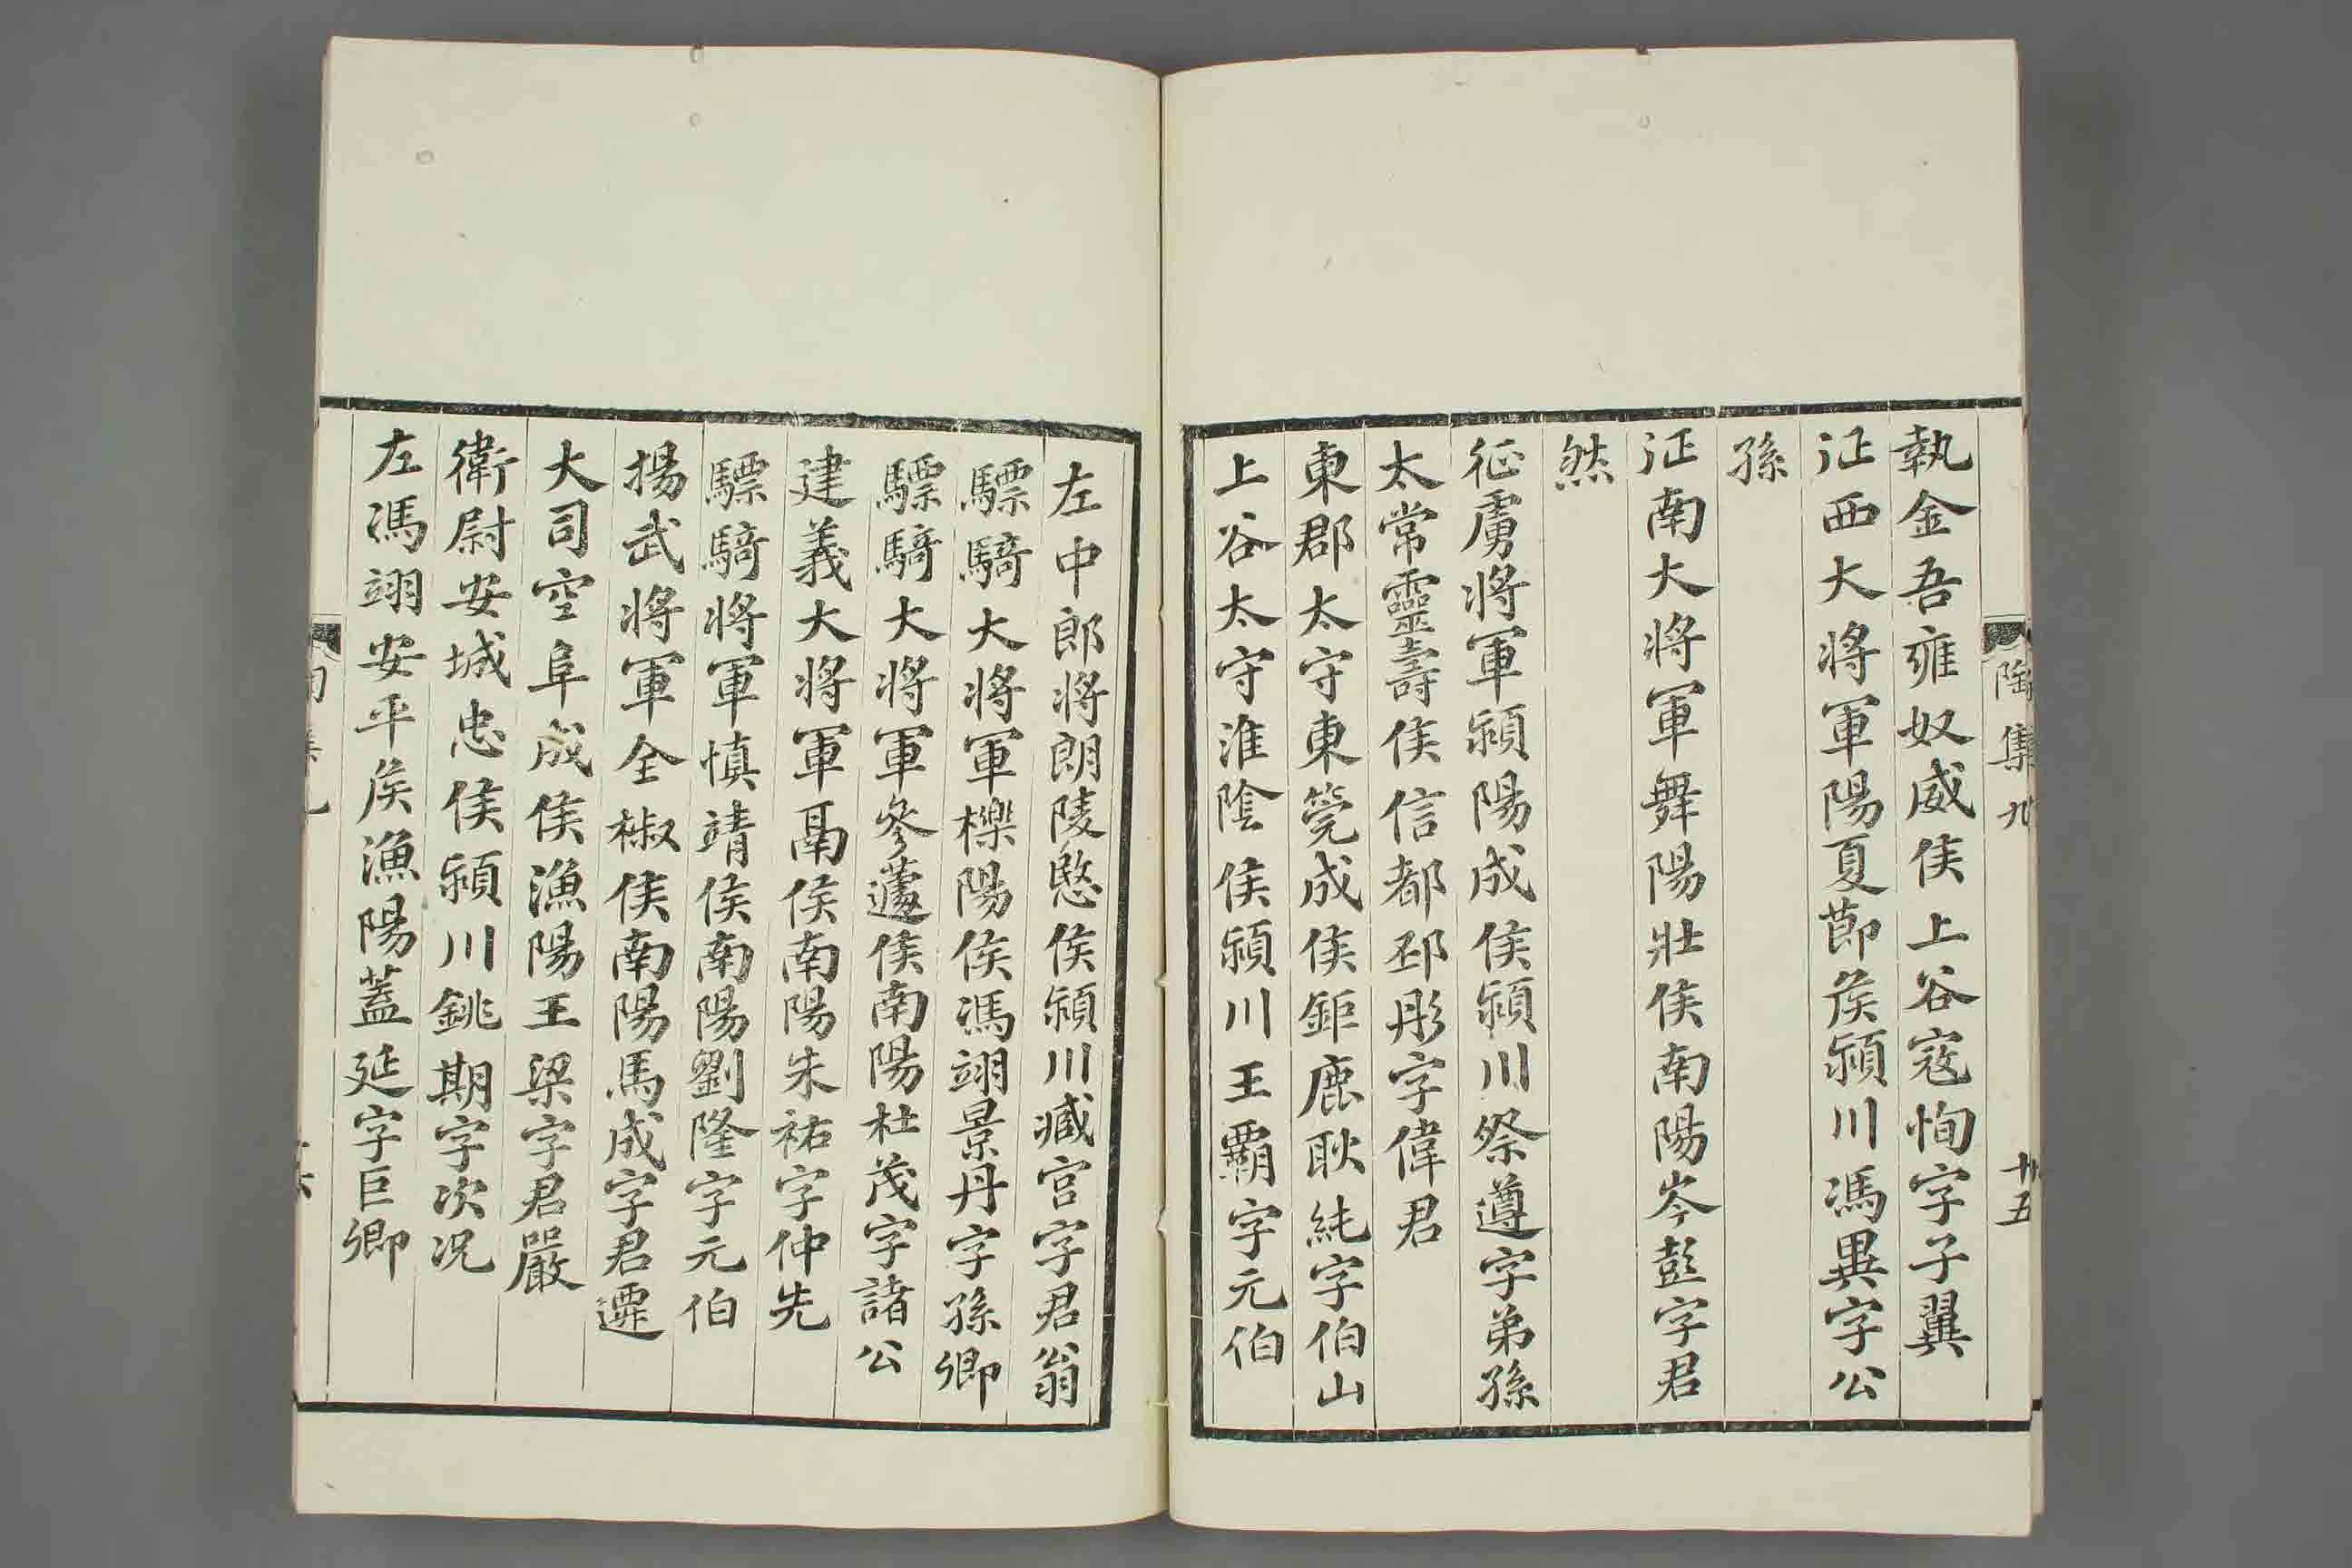 陶集九
十五
執金吾雍奴威侯上谷寇恂字子翼
征西大將軍陽夏節侯潁川馮異字公
孫
征南大將軍舞陽壯侯南陽岑彭字君
然
征虜將軍潁陽成侯潁川祭遵字弟孫
太常靈壽侯信都邳彤字偉君
東郡太守東筦成侯鉅鹿耿純字伯山
上谷太守淮陰侯潁川王霸字元伯
左中郎將朗陵愍侯潁川臧宮字君翁
驃騎大將軍櫟陽侯馮翊景丹字孫卿
驃騎大將軍參蘧侯南陽杜茂字諸公
建義大將軍鬲侯南陽朱祐字仲先
驃騎將軍慎靖侯南陽劉隆字元伯
揚武將軍全椒侯南陽馬成字君遷
大司空阜成侯漁陽王梁字君嚴
衛尉安城忠侯潁川銚期字次況
左馮翊安平侯漁陽蓋延字巨卿